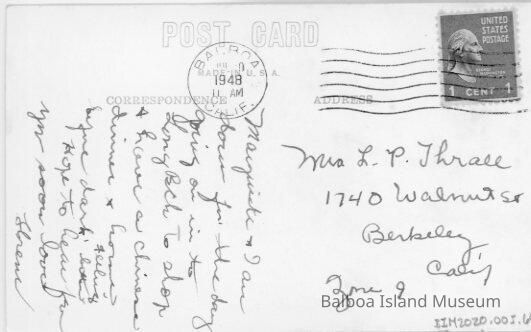 POST CARD
BALBOA
CALIF.
1948
11 AM
MADE IN U.S.A.
UNITED
STATES
POSTAGE
1 CENT 1
CORRESPONDENCE
ADDRESS
Marguerite & I are
down for the day
going on in to
Long Bch to shop
& have a chinese
dinner & home
before dark
Hope to hear from
you soon love
Mrs L. P. Thrall
1740 Walnut St
Berkeley
Calif
Zone 9
Balboa Island Museum